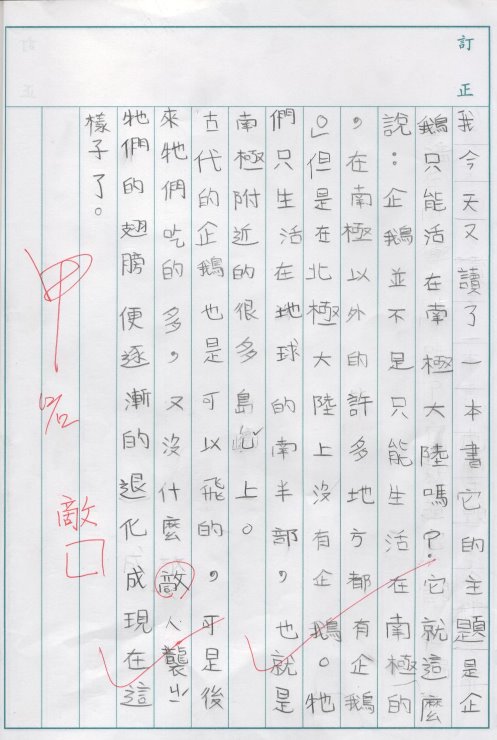 訂正
我今天又讀了一本書它的主題是企
鵝只能活在南極大陸嗎？它就這麼
說：企鵝並不是只能生活在南極的
，在南極以外的許多地方都有企鵝
。」但是在北極大陸上沒有企鵝。牠
們只生活在地球的南半部，也就是
南極附近的很多島屿上。
古代的企鵝也是可以飛的，可是後
來牠們吃的多，又沒什麼敵人襲
牠們的翅膀便逐漸的退化成現在這
樣子了。
甲
敵